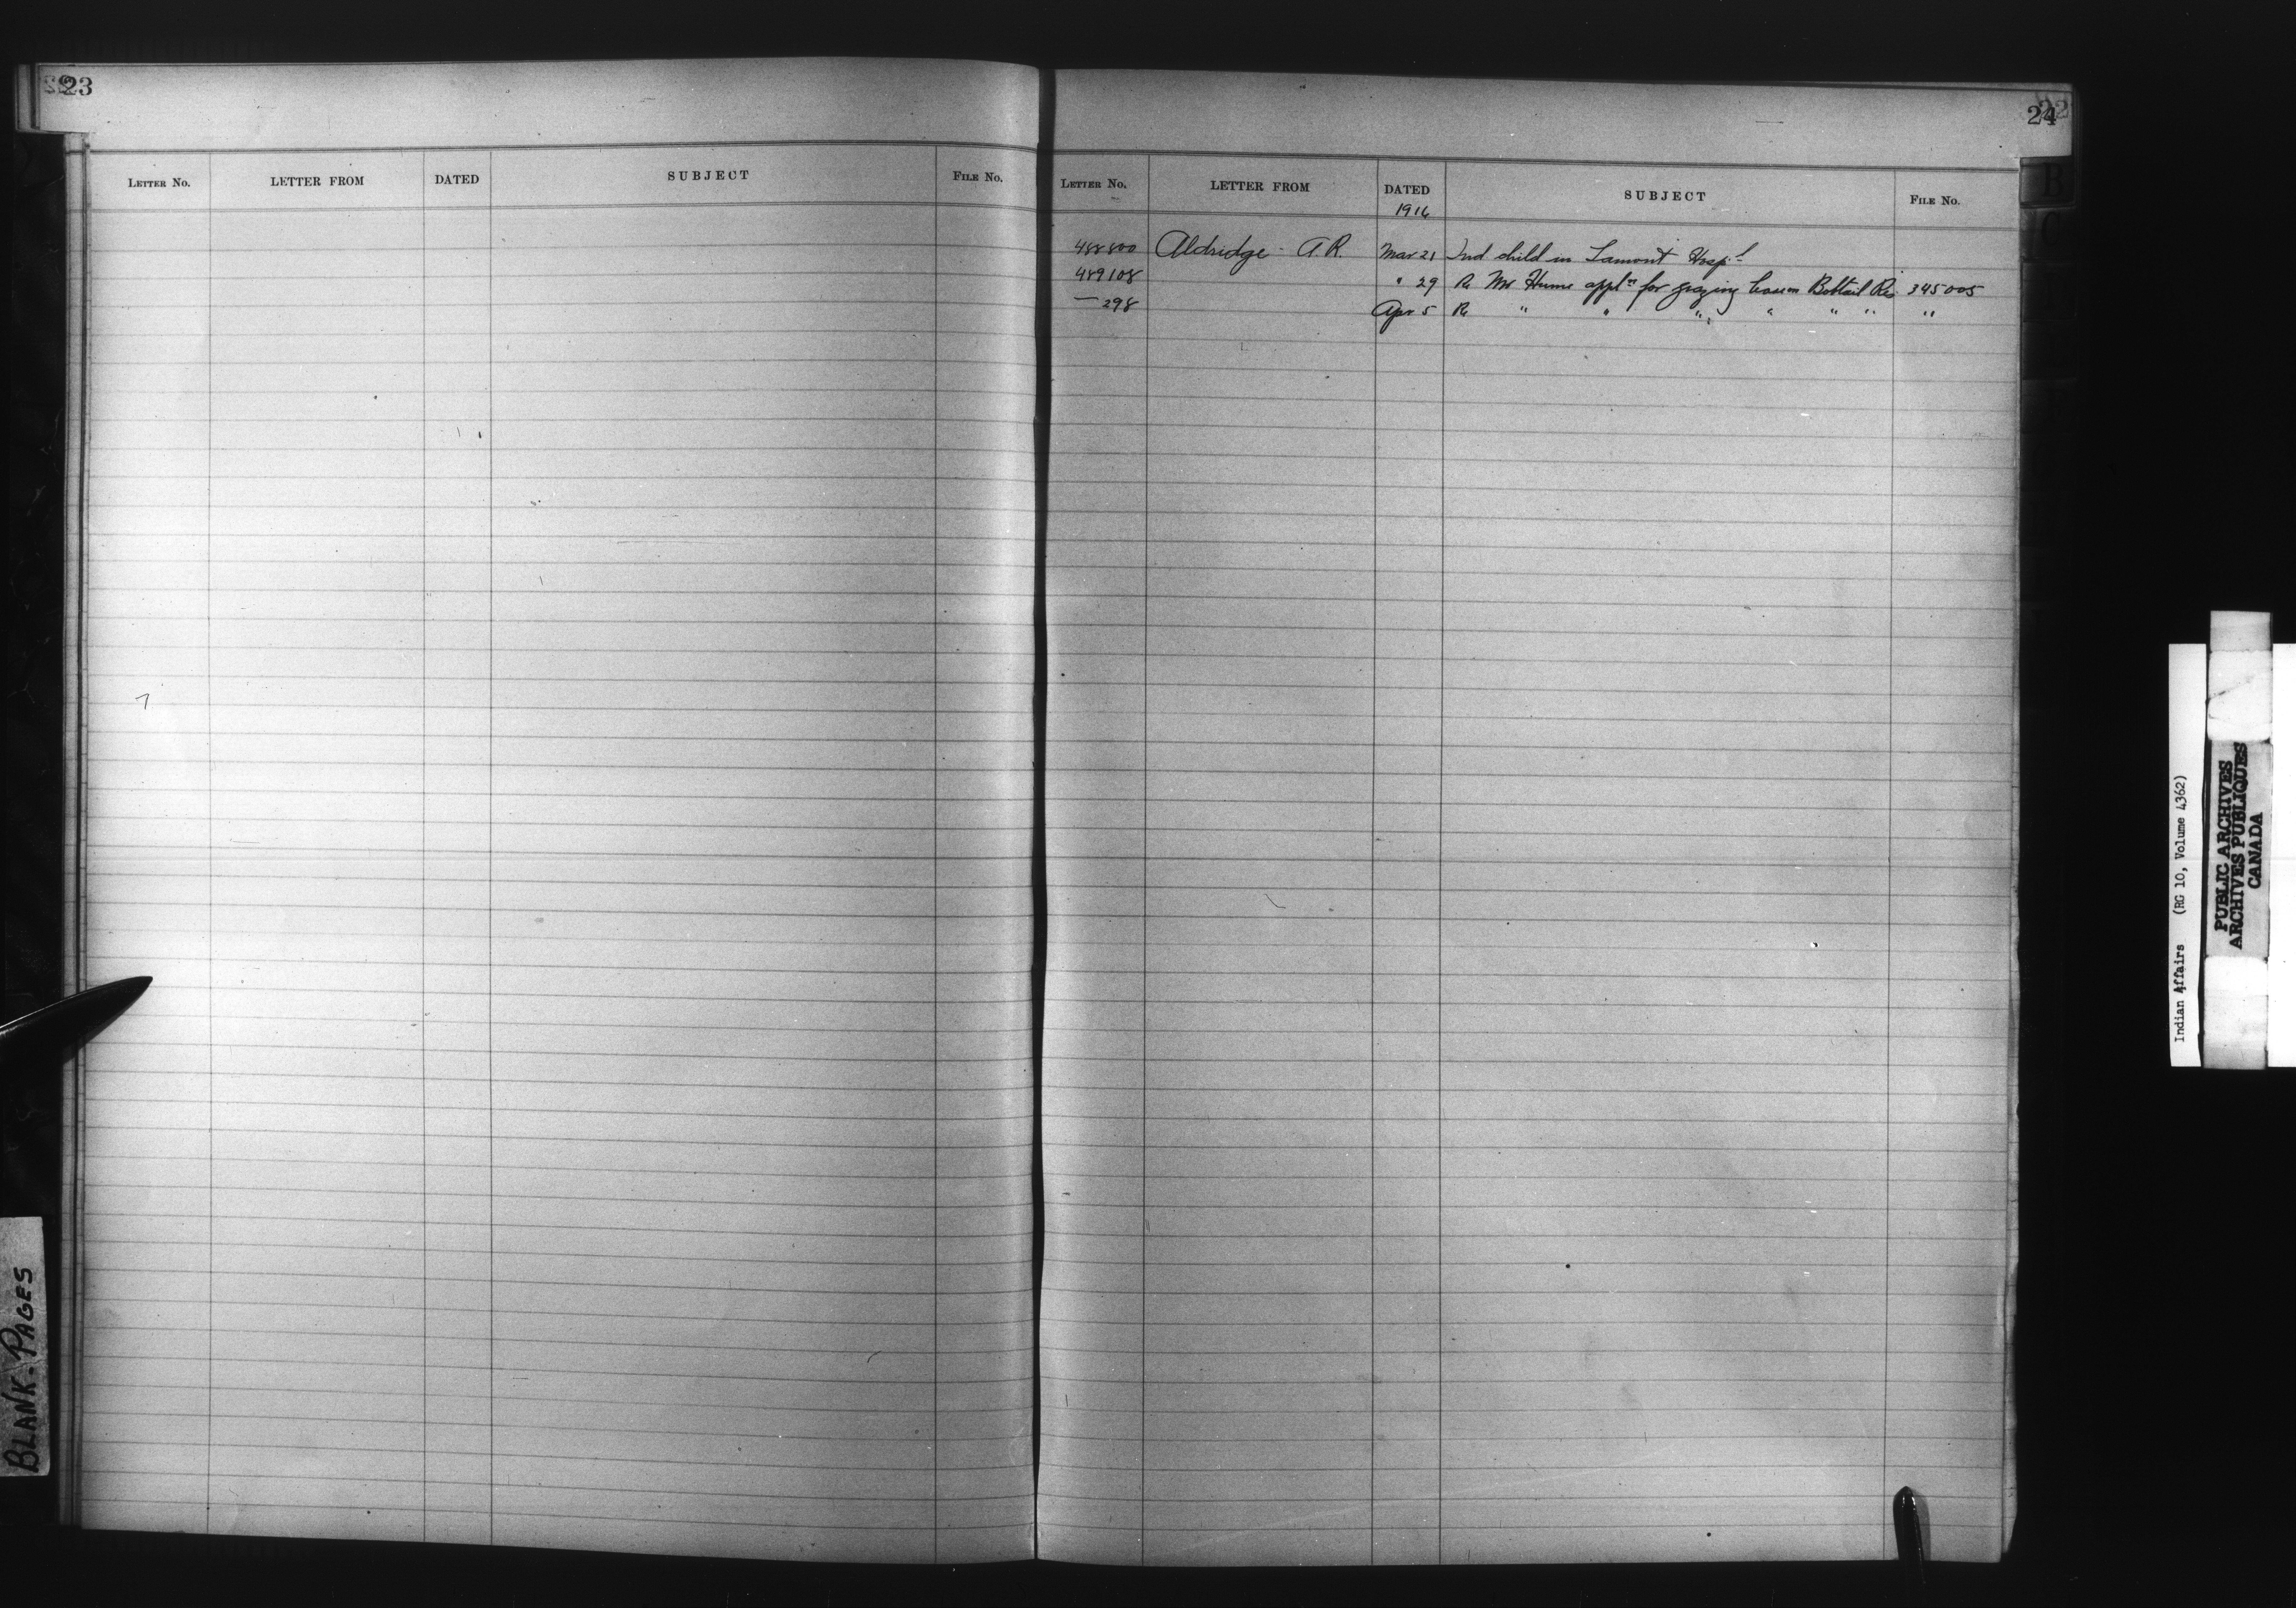 23
LETTER No. LETTER FROM DATED SUBJECT FILE No.
24
LETTER No. LETTER FROM DATED SUBJECT FILE No.
1916
488800 Aldridge - A.R. Mar 21 Ind child in Lamont Hospl
489108 " 29 Re Mr Hume appln for grazing lease on Bobtail Res 345005
— 298 Apr 5 Re " " " " " " "
B
C
BLANK-PAGES
Indian Affairs (RG 10, Volume 4362)
PUBLIC ARCHIVES
ARCHIVES PUBLIQUES
CANADA